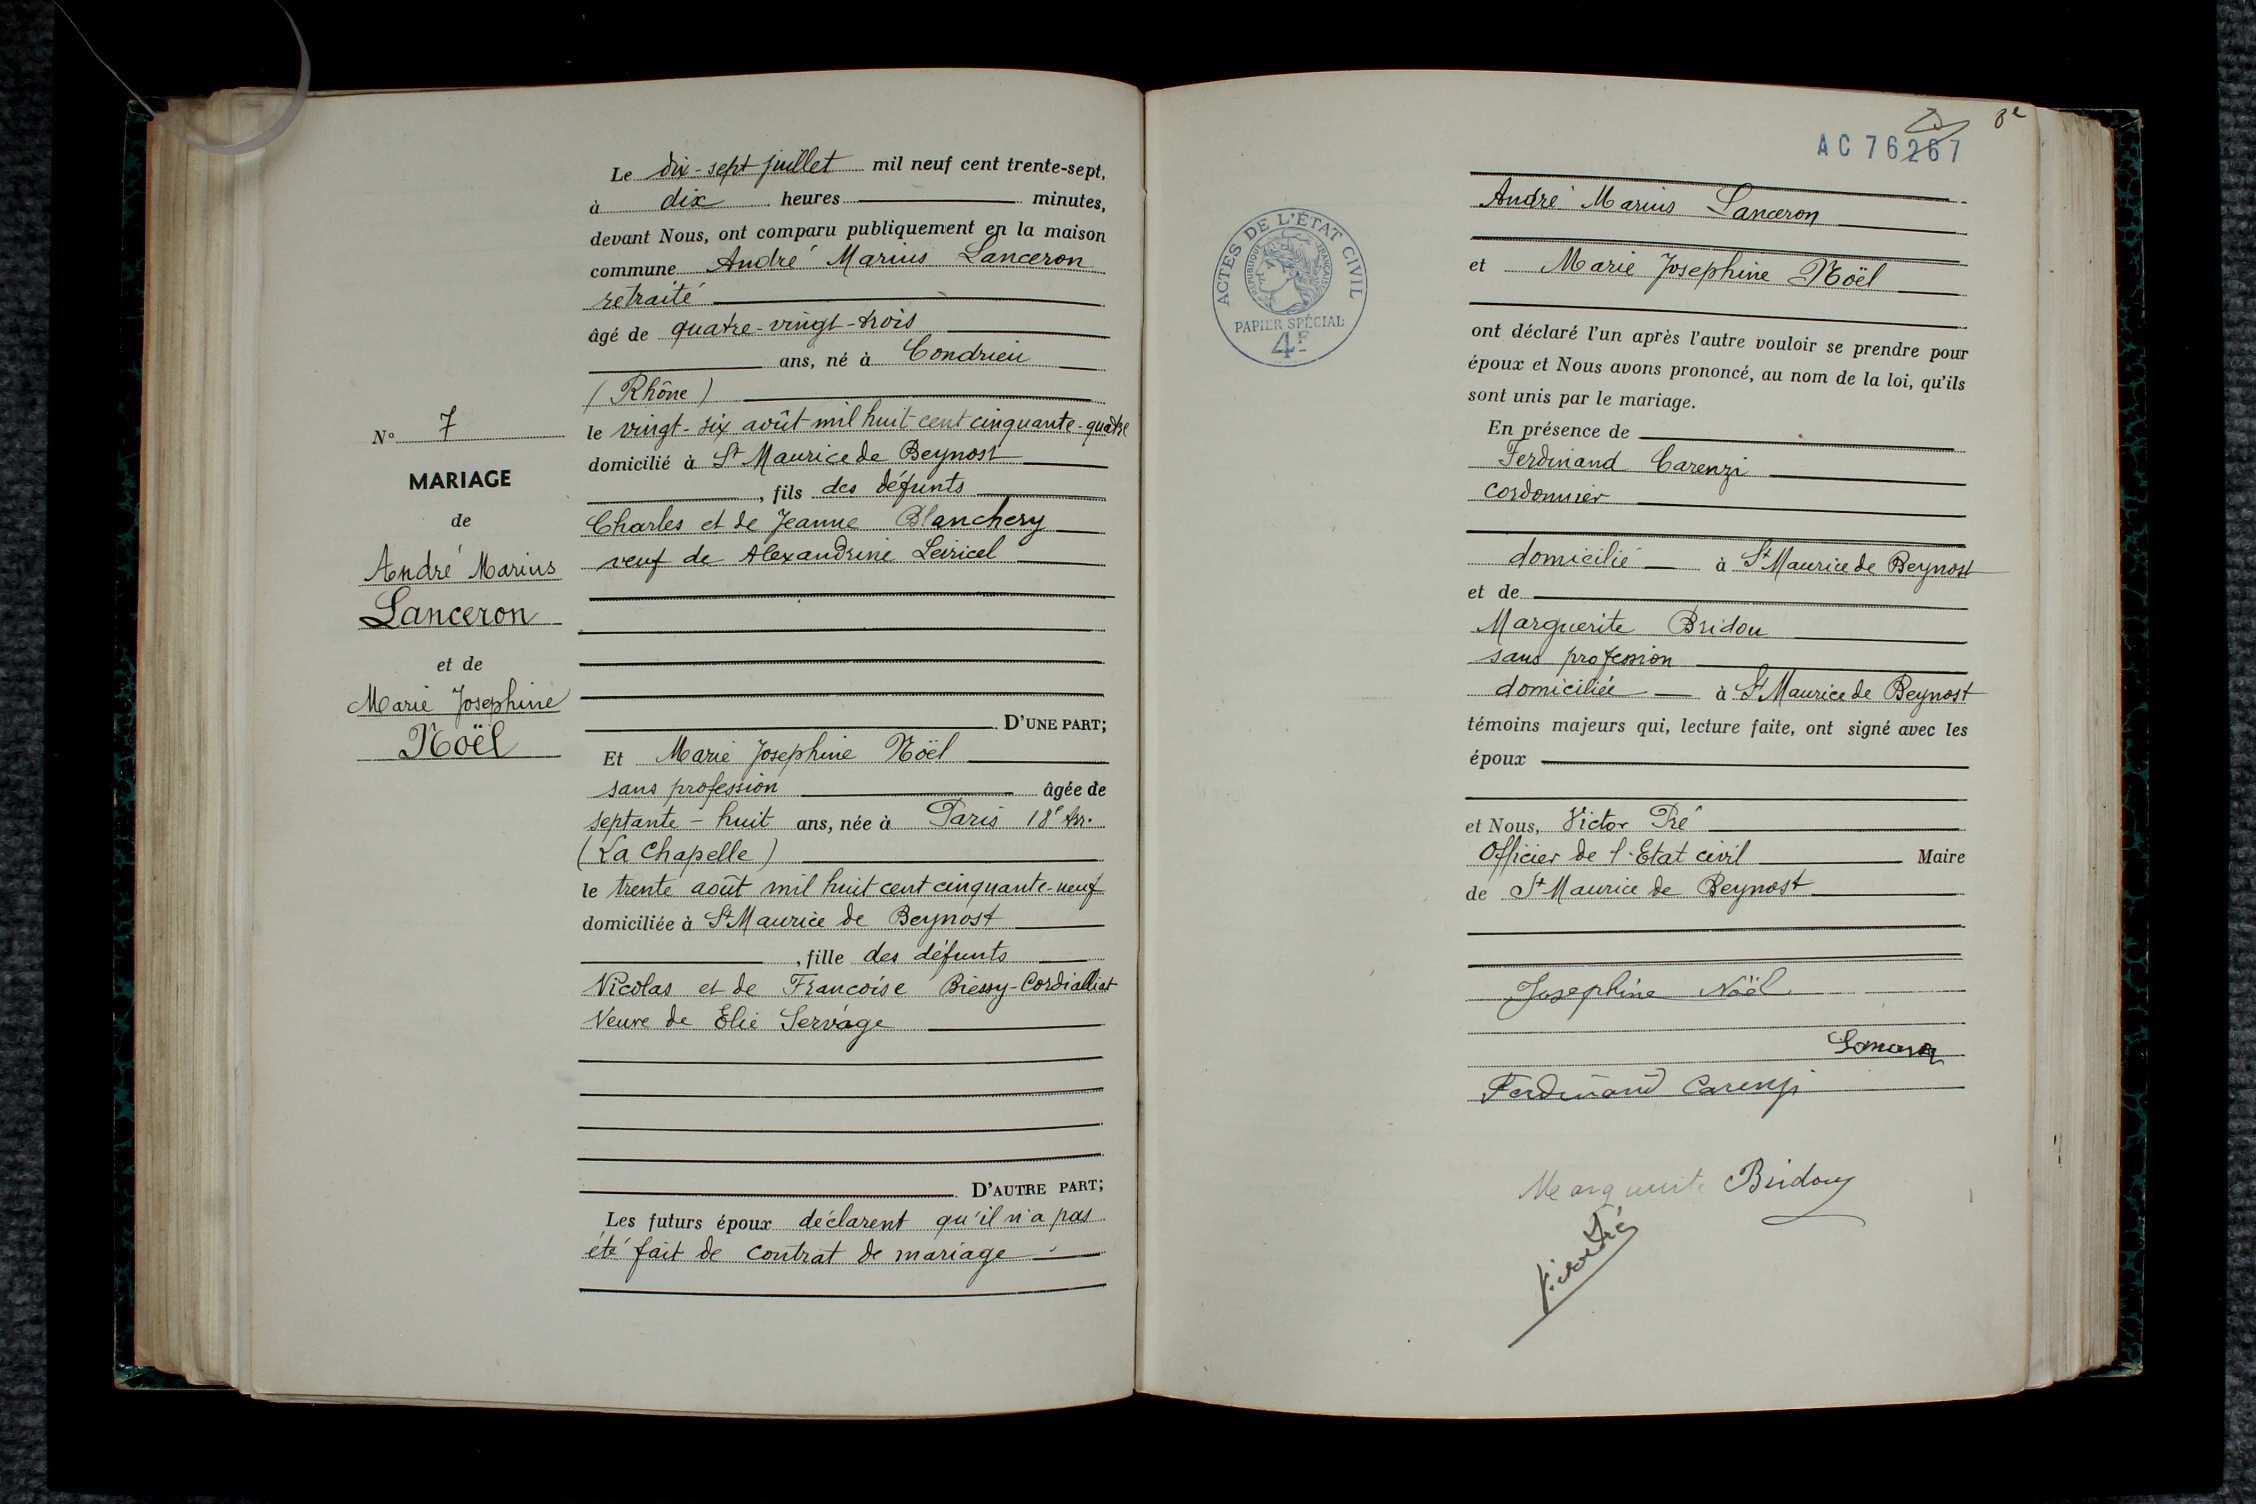 N° 7
MARIAGE
de
André Marius
Lanceron
et de
Marie Josephine
Noël
Le dix-sept juillet mil neuf cent trente-sept,
à dix heures minutes,
devant Nous, ont comparu publiquement en la maison
commune André Marius Lanceron
retraité
âgé de quatre-vingt-trois
ans, né à Condrieu
(Rhône)
le vingt-six août mil huit cent cinquante-quatre
domicilié à St Maurice de Beynost
, fils des défunts
Charles et de Jeanne Blanchery
veuf de Alexandrine Leiricel
D'UNE PART;
Et Marie Josephine Noël
sans profession âgée de
septante-huit ans, née à Paris 18e Arr.
(La Chapelle)
le trente août mil huit cent cinquante-neuf
domiciliée à St Maurice de Beynost
, fille des défunts
Nicolas et de Francoise Biessy-Cordialliat
Veuve de Elie Servage
D'AUTRE PART;
Les futurs époux déclarent qu'il n'a pas
été fait de contrat de mariage
AC 76267
ACTES DE L'ÉTAT CIVIL
RÉPUBLIQUE FRANÇAISE
PAPIER SPÉCIAL
4F
André Marius Lanceron
et Marie Josephine Noël
ont déclaré l'un après l'autre vouloir se prendre pour
époux et Nous avons prononcé, au nom de la loi, qu'ils
sont unis par le mariage.
En présence de
Ferdinand Carenzi
cordonnier
domicilié à St Maurice de Beynost
et de
Marguerite Bridou
sans profession
domiciliée à St Maurice de Beynost
témoins majeurs qui, lecture faite, ont signé avec les
époux
et Nous, Victor Pré
Officier de l'Etat civil Maire
de St Maurice de Beynost
Josephine Noël
Ferdinand Carenzi
Marguerite Bridou
Victor Pré